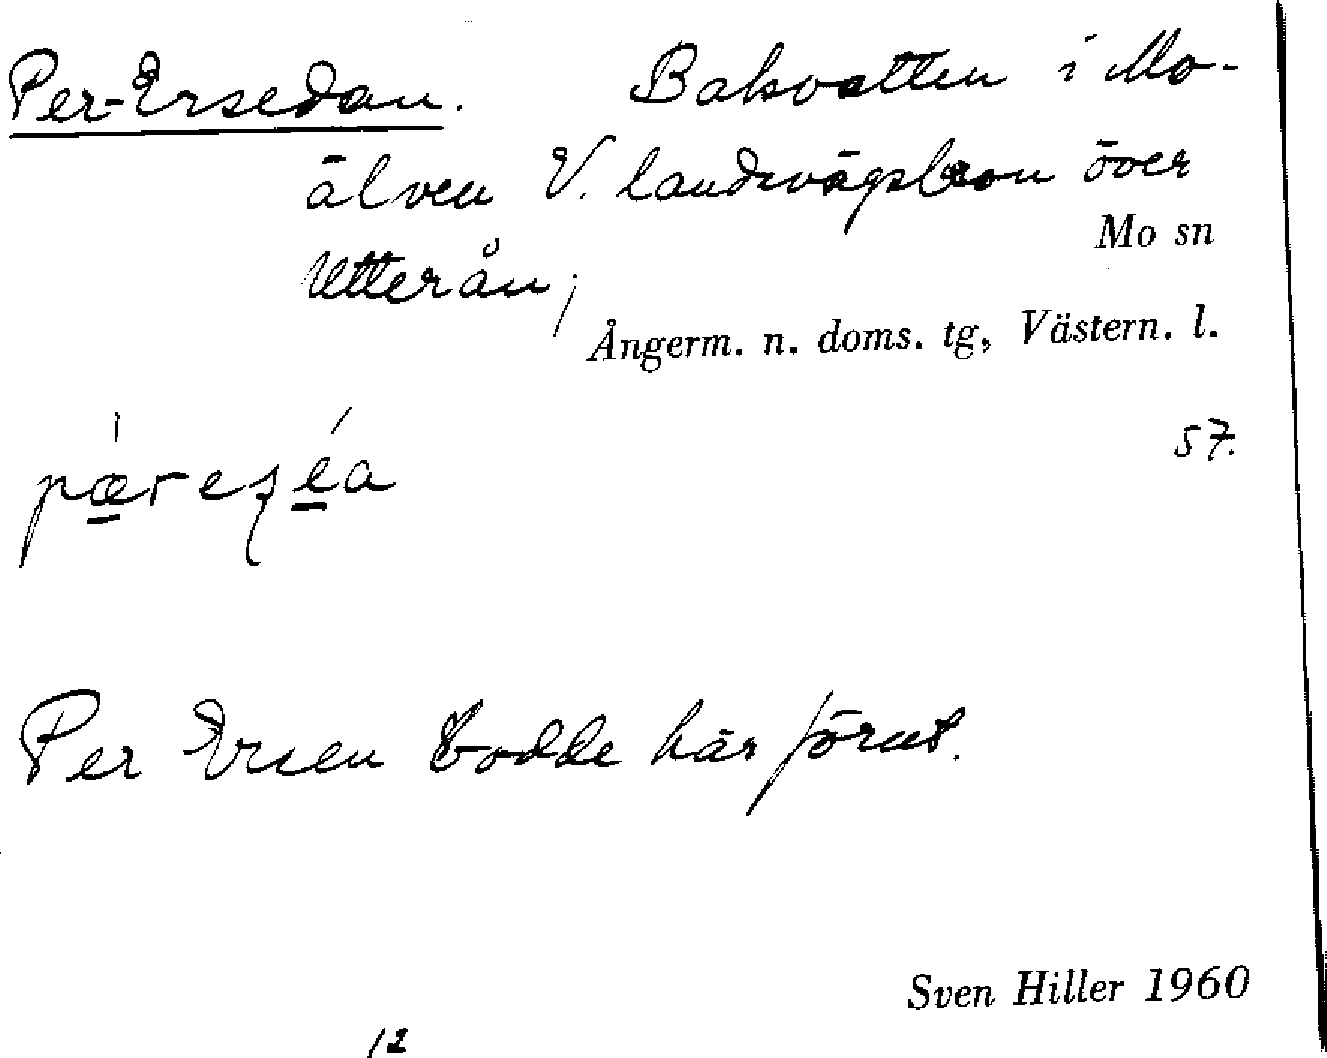 Per-Ersedan. Bakvatten i Mo-
älven V. landsvägsbron över
Utterån;
Mo sn
Ångerm. n. doms. tg, Västern. l.
57.
Per Ersen bodde här förut.
Sven Hiller 1960
12